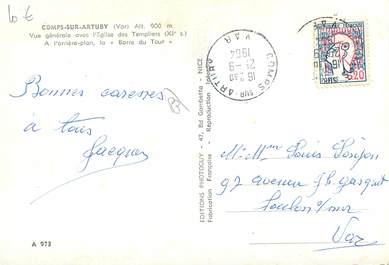 10 €
COMPS-SUR-ARTUBY (Var) Alt. 900 m.
Vue générale avec l'Eglise des Templiers (XIe s.)
A l'arrière-plan, la « Barre du Tour »
COMPS SUR ARTUBY
VAR
16 H
21-9
1964
0,20
Bonnes caresses
à tous
Jacques
EDITIONS PHOTOGUY - 47, Bd Gambetta - NICE
Fabrication Française - Reproduction Interdite
M. Mme Louis
92 avenue
Toulon s/mer
Var
A 973